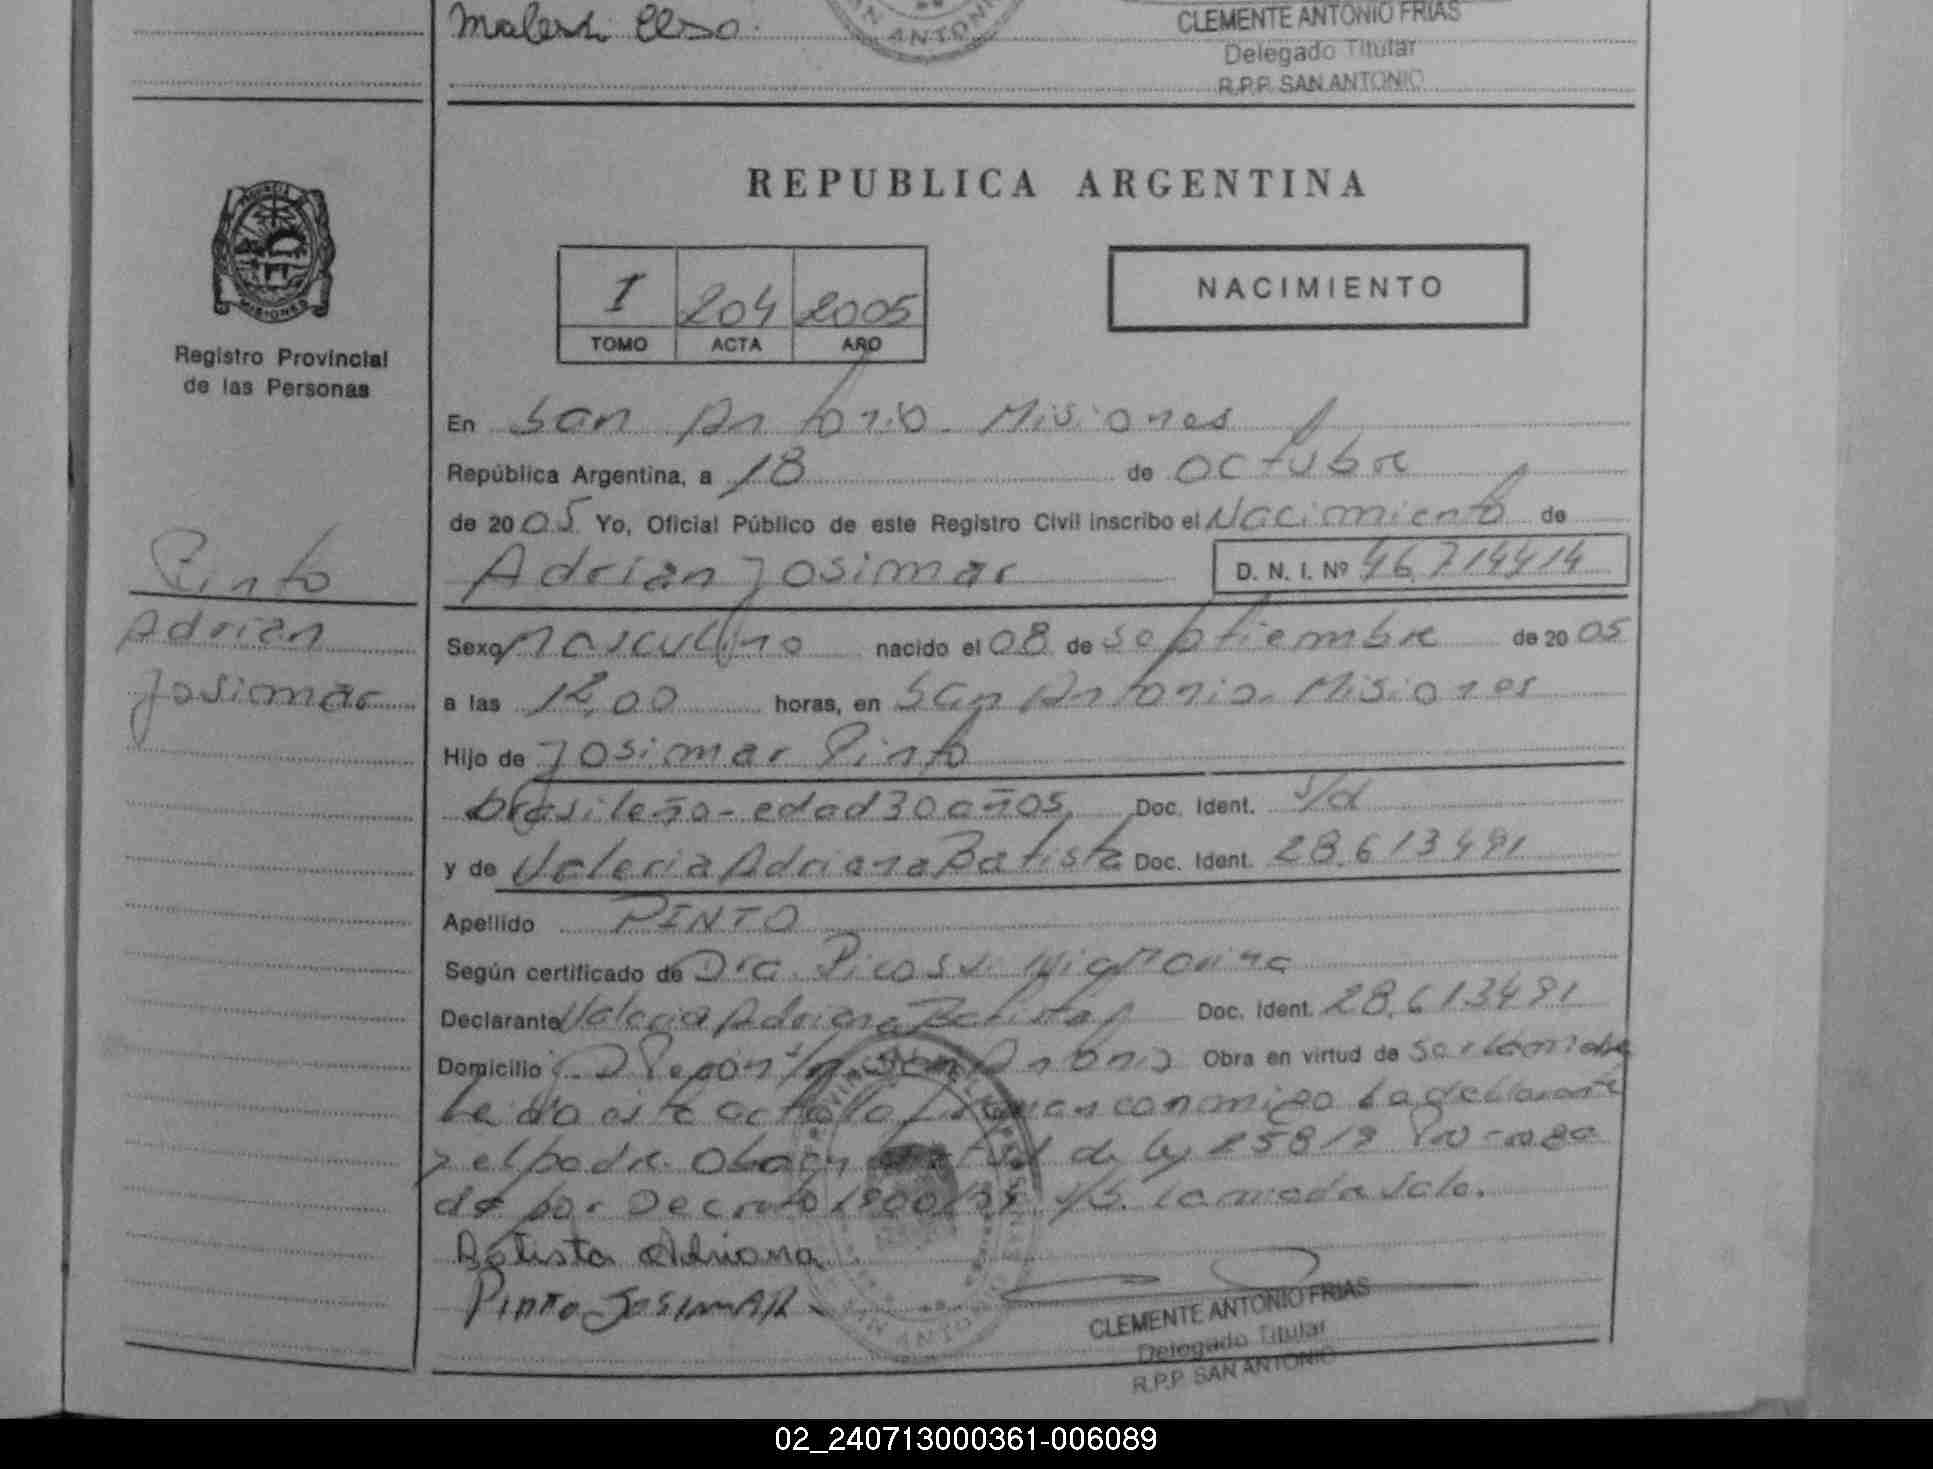 CLEMENTE ANTONIO FRIAS
Delegado Titular
R.P.P. SAN ANTONIO
SAN ANTONIO
REPUBLICA ARGENTINA
MISIONES
Registro Provincial
de las Personas
I 204 2005
TOMO ACTA AÑO
NACIMIENTO
En San Antonio - Misiones
República Argentina, a 18 de octubre
de 2005 Yo, Oficial Público de este Registro Civil inscribo el Nacimiento de
Pinto
Adrian Josimar D. N. I. Nº 46.714414
Adrian
Josimar
Sexo Masculino nacido el 08 de septiembre de 2005
a las 12,00 horas, en San Antonio - Misiones
Hijo de Josimar Pinto
brasileño - edad 30 años Doc. Ident. s/d
y de Valeria Adriana Batista Doc. Ident. 28.613491
Apellido PINTO
Según certificado de Dra. Picos
Declarante Valeria Adriana Batista Doc. Ident. 28.613491
Domicilio San Antonio Obra en virtud de ser la madre
Leida este acta la firman conmigo la declarante
y el padre. Obra en virtud de ley 25819
do por Decreto
Batista Adriana
Pinto JOSIMAR
CLEMENTE ANTONIO FRIAS
Delegado Titular
R.P.P. SAN ANTONIO
02_240713000361-006089